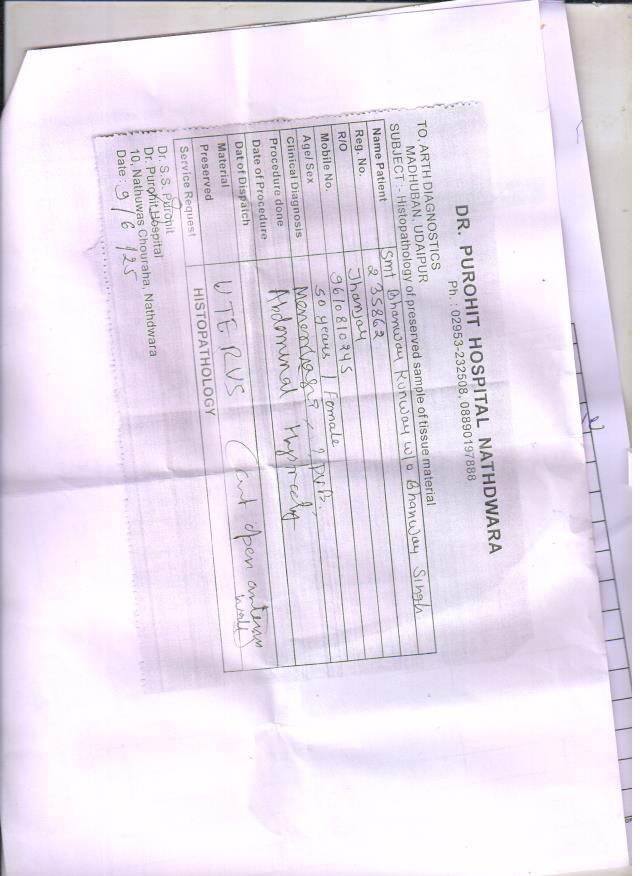 DR. PUROHIT HOSPITAL NATHDWARA
Ph.: 02953-232508, 08890197888
TO, ARTH DIAGNOSTICS
MADHUBAN, UDAIPUR
SUBJECT :- Histopathology of preserved sample of tissue material
Name Patient Smt Bhanwar Kunwar w/o Bhanwar Singh
Reg. No. 235862
R/O Jhanjar
Mobile No. 9610810945
Age/ Sex 50 years / Female
Clinical Diagnosis
Procedure done Abdominal
Date of Procedure
Dat of Dispatch
Material UTERUS (cut open anterior wall)
Preserved
Service Request HISTOPATHOLOGY
Dr. S.S. Purohit
Dr. Purohit Hospital
10, Nathuwas Chouraha, Nathdwara
Date : 9/6/25